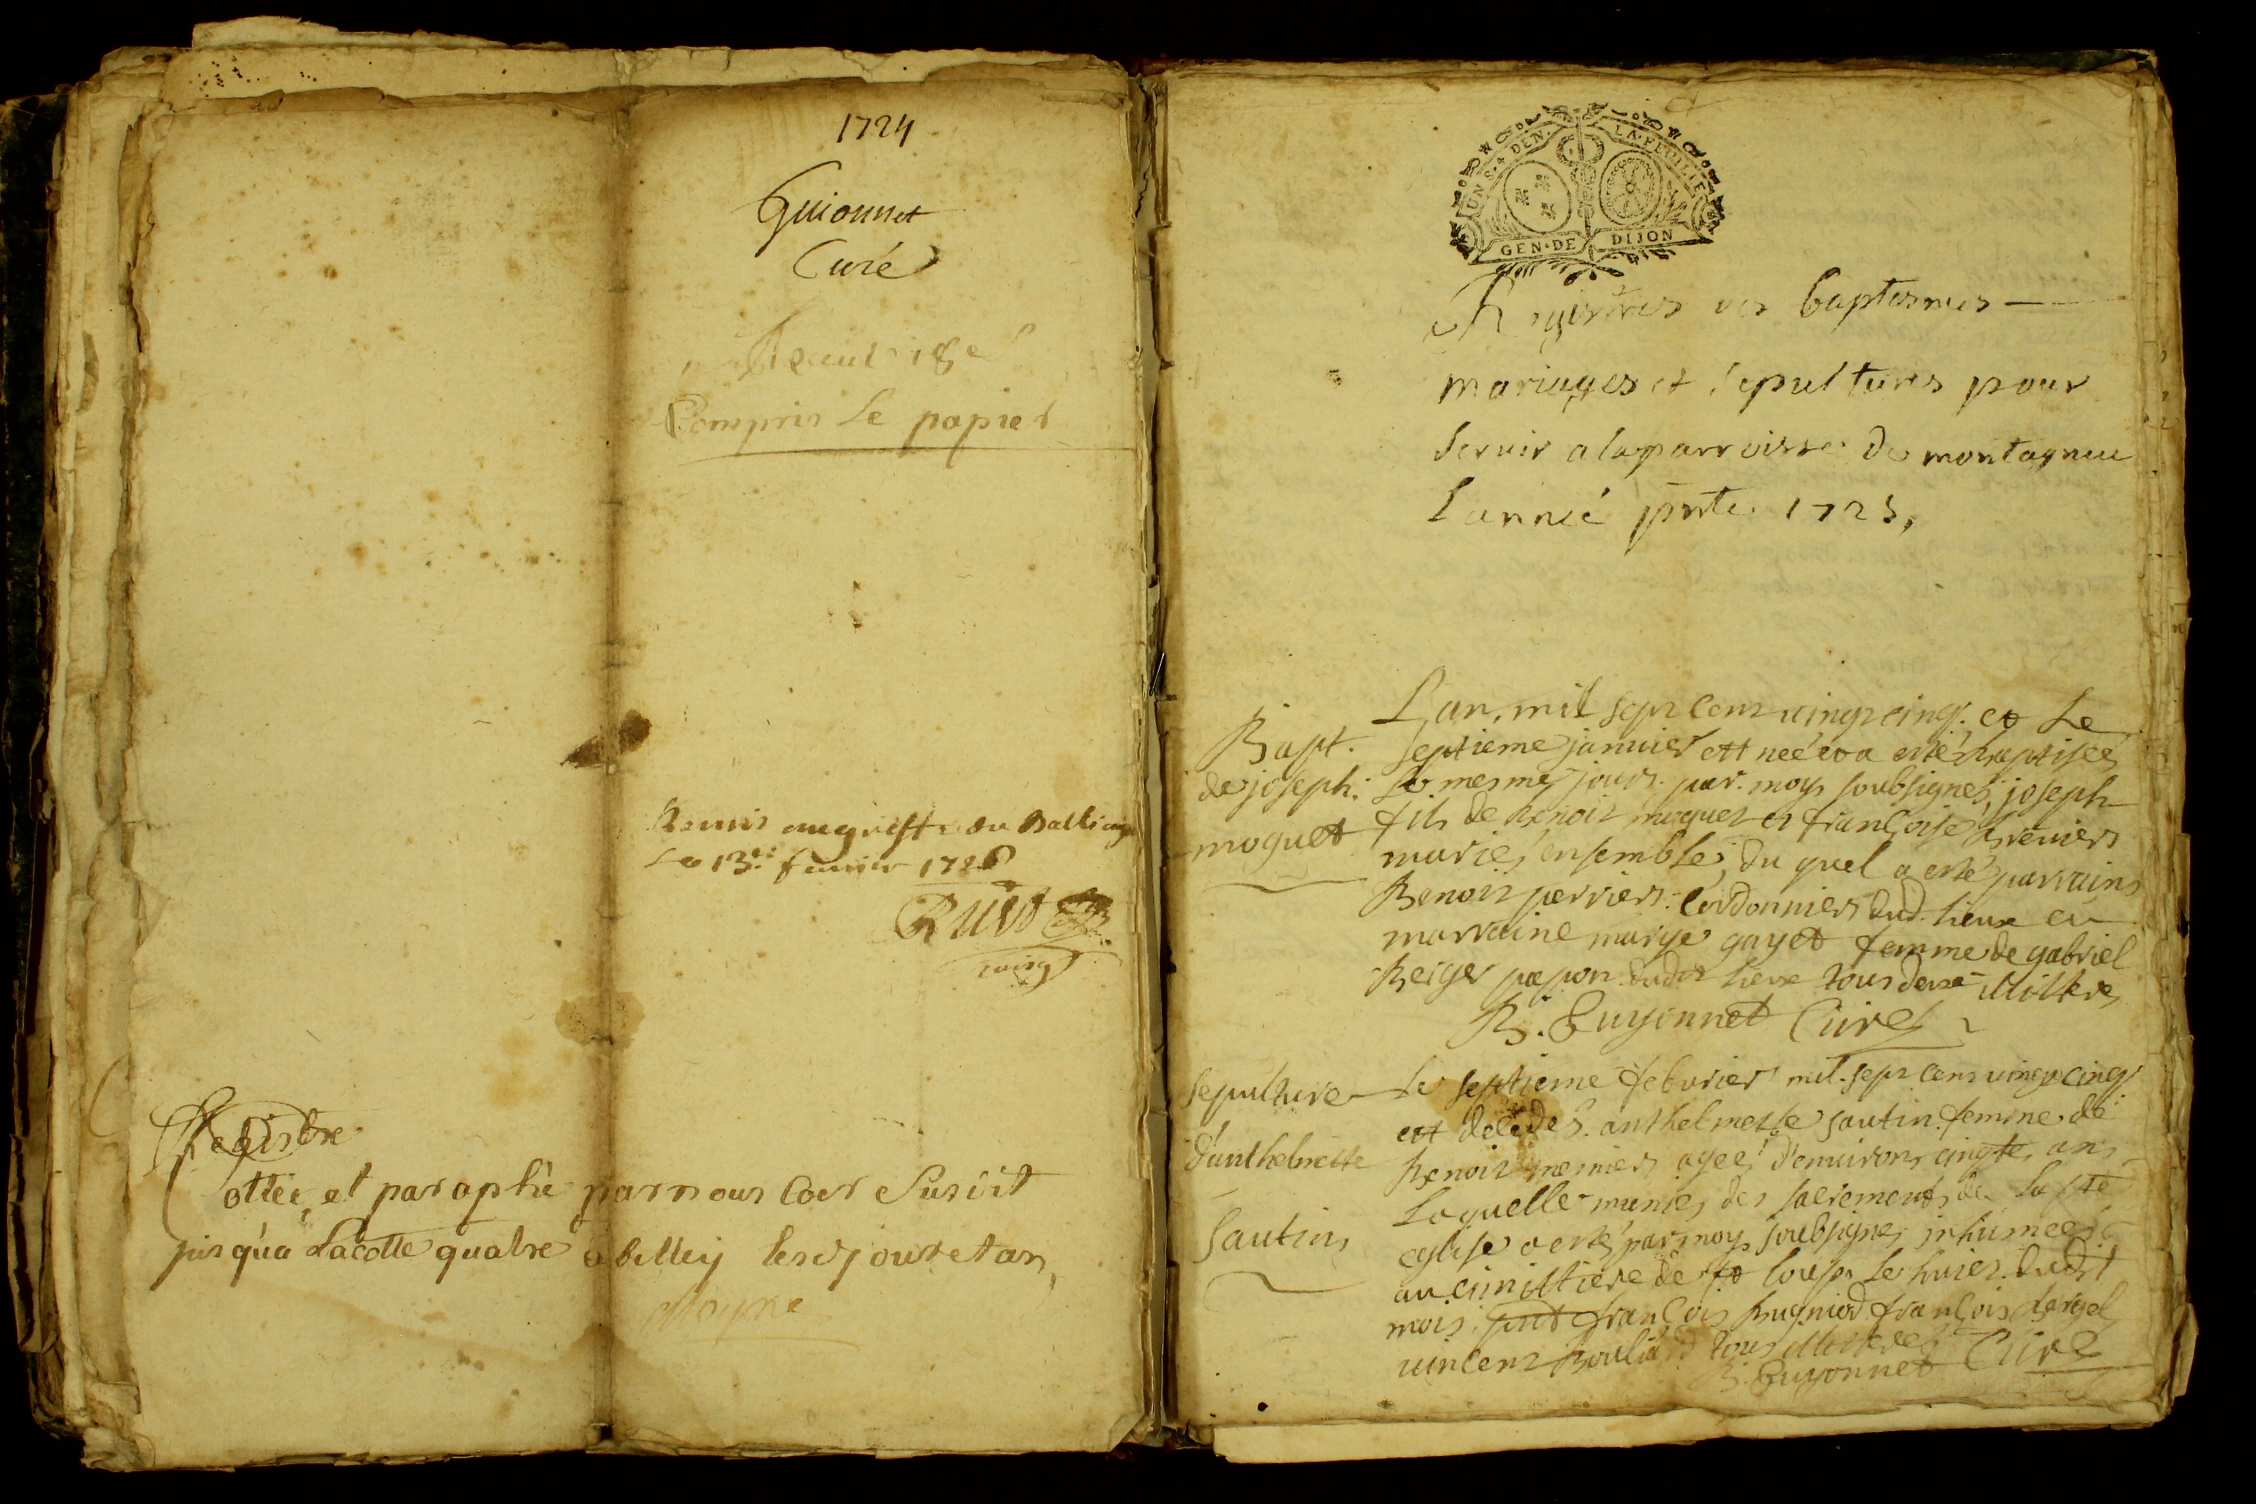 1724
Guionnet
Curé
Compris le papier
Remis au greffe du Balliage
Le 13.e feurier 1726
Registre
Cottée, et paraphé par nous Coer Susdit
jusqu'a Lacotte quatre a belley lesdjour et an,
UN S. 4 DEN. LA FEUILLE
GEN. DE DIJON
Registres des baptesmes
mariages et sepultures pour
servir a la parroisse de montagneu
Lannée pnte 1725,
Bapt.
de joseph.
moguet
L'an mil sept cent vingt cinq. et le
septieme januier est née et a esté baptisée
le mesme jour par moy soubsigné, joseph
fils de Benoit muguet et françoise Breuiers
mariés ensemble, du quel a esté parrain
Benoit perrier Cordonnier dud. lieux et
marraine marye gayet femme de gabriel
Berger papon dudit lieux tous deux illiteres
B. Guyonnet Curé
sepulture
d'anthelmette
Sautin
Le septieme feburier mil sept cent vingt cinq
est decedes anthelmette sautin femme de
Benoit mernier agée d'enuirons cinqte ans
Laquelle munies des sacrements de la ste
eglise a esté par moy soubsigné inhumée
au cimistiere de st loup le huict dudit
mois pnt françois hugniod françois Bergel
vincent Bouliard tous illiteres
B. Guyonnet Curé